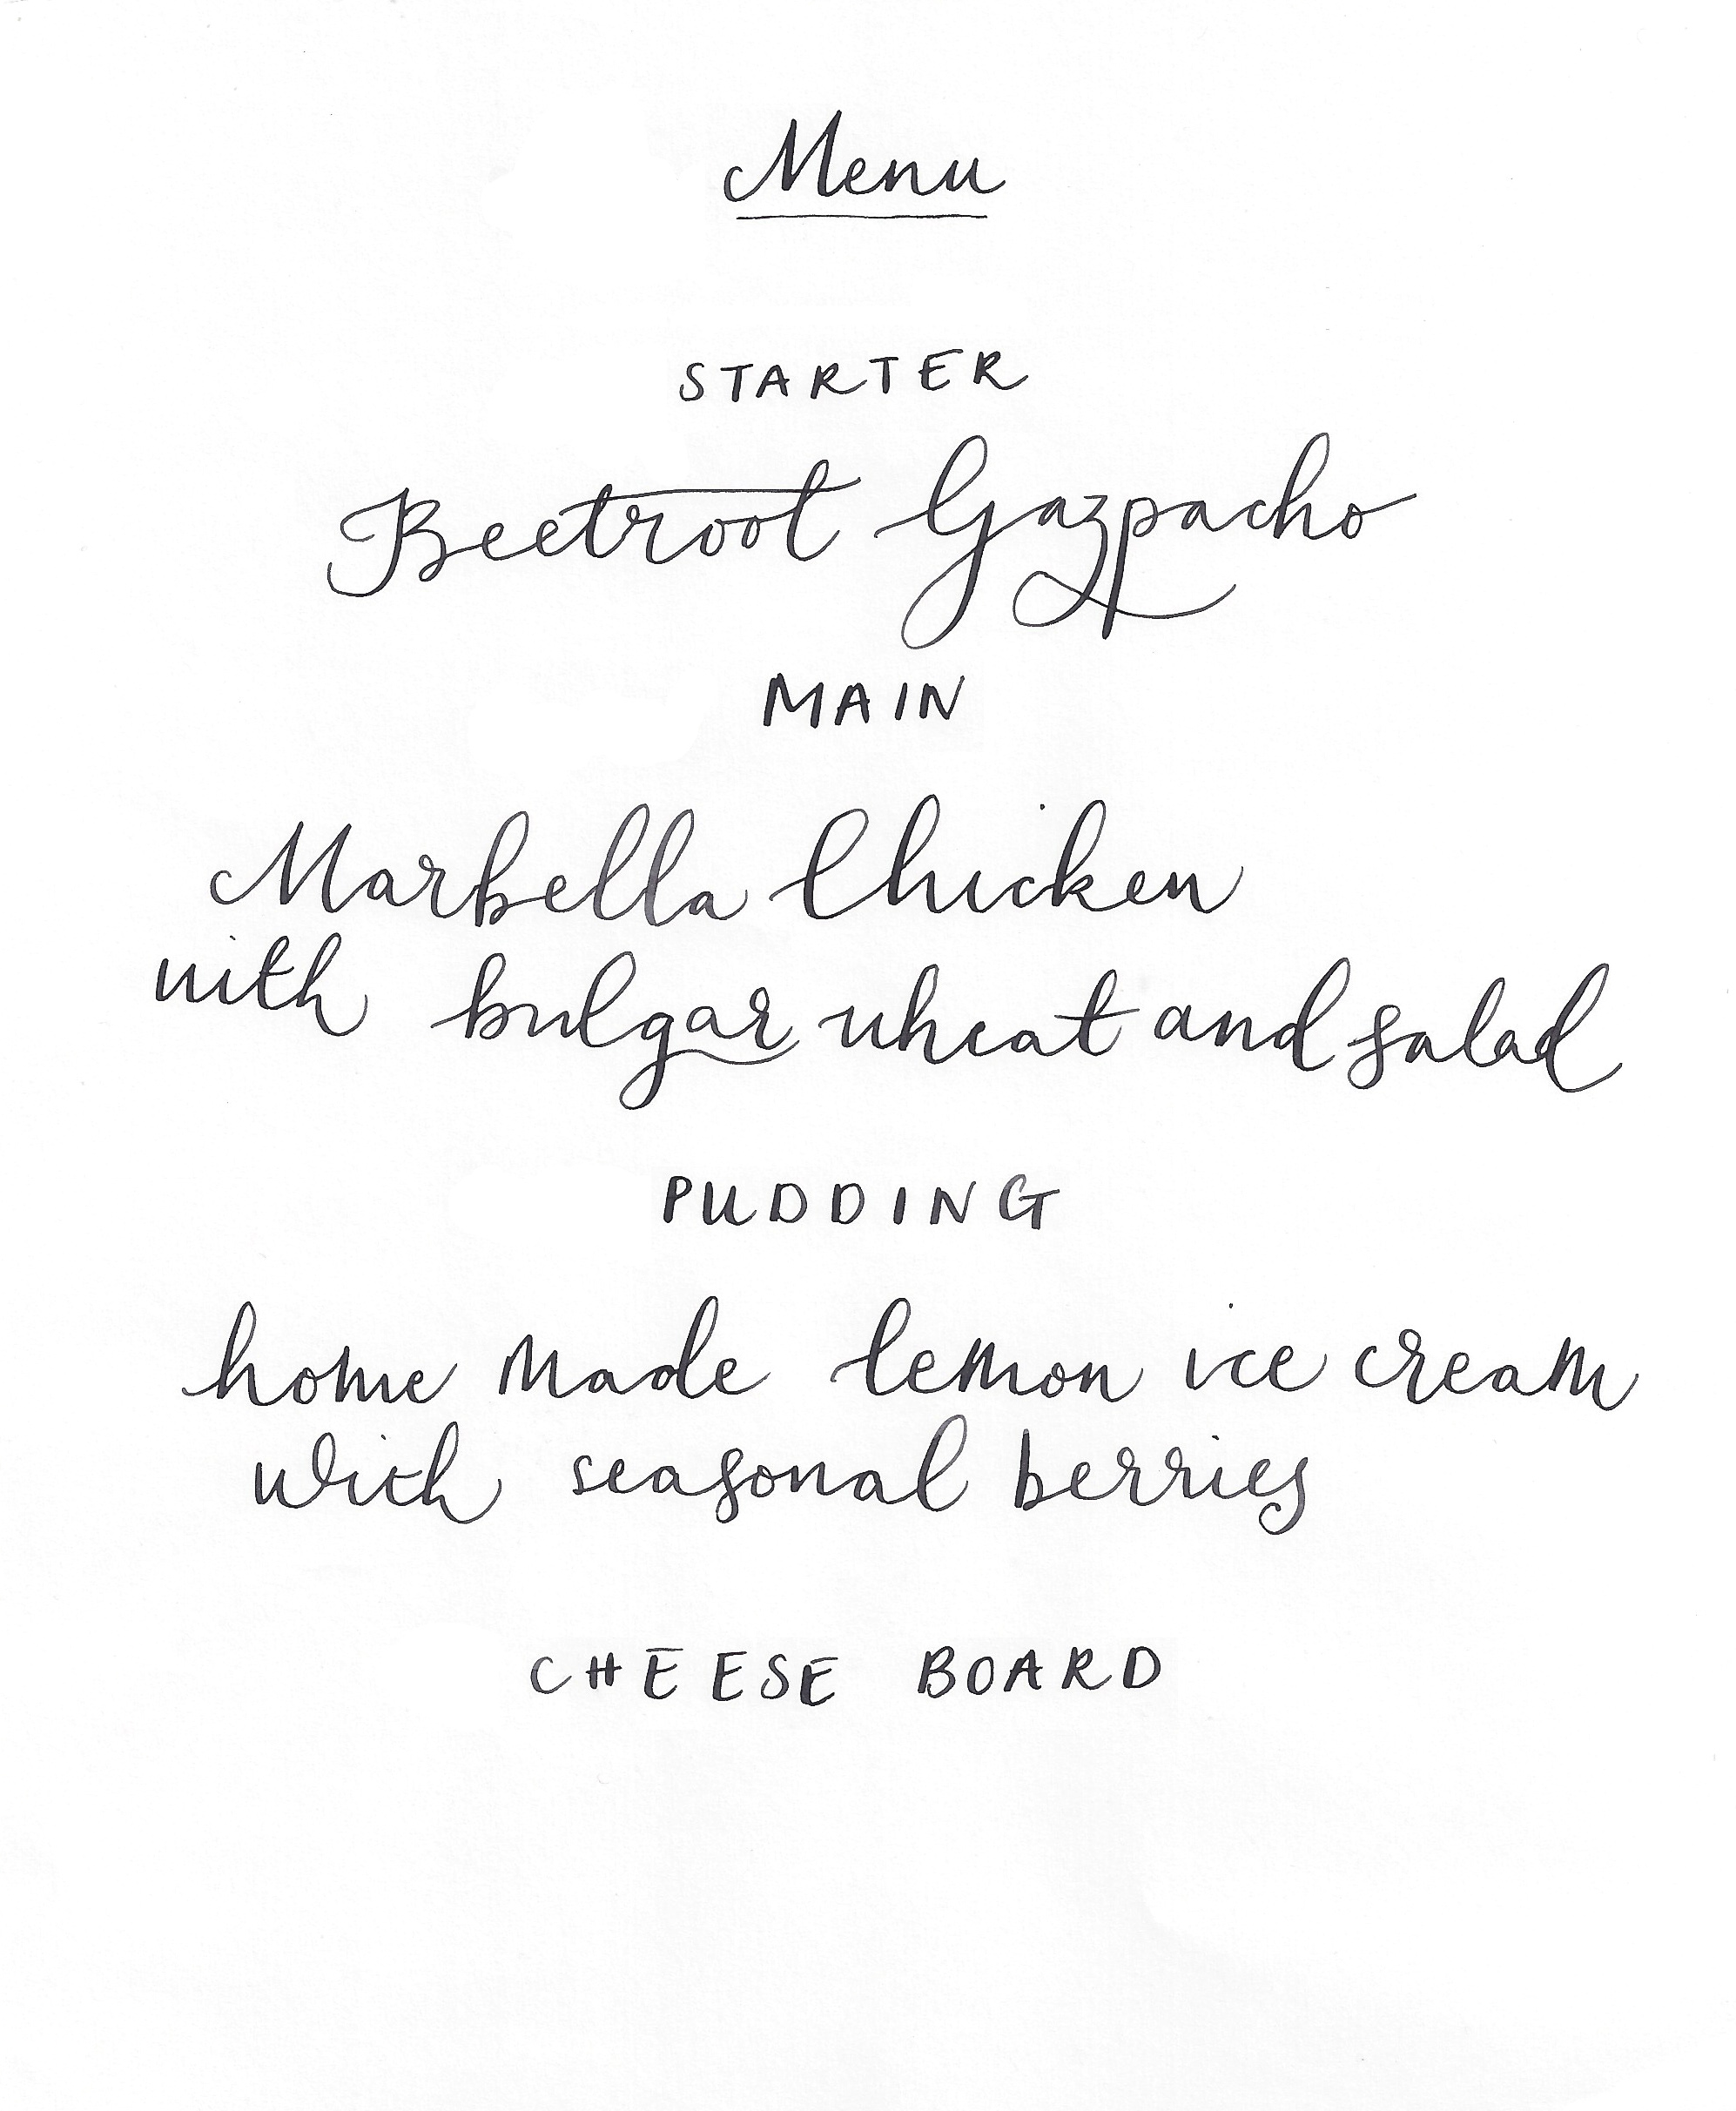 Menu
STARTER
Beetroot Gazpacho
MAIN
Marbella Chicken
with bulgar wheat and salad
PUDDING
home made lemon ice cream
with seasonal berries
CHEESE BOARD